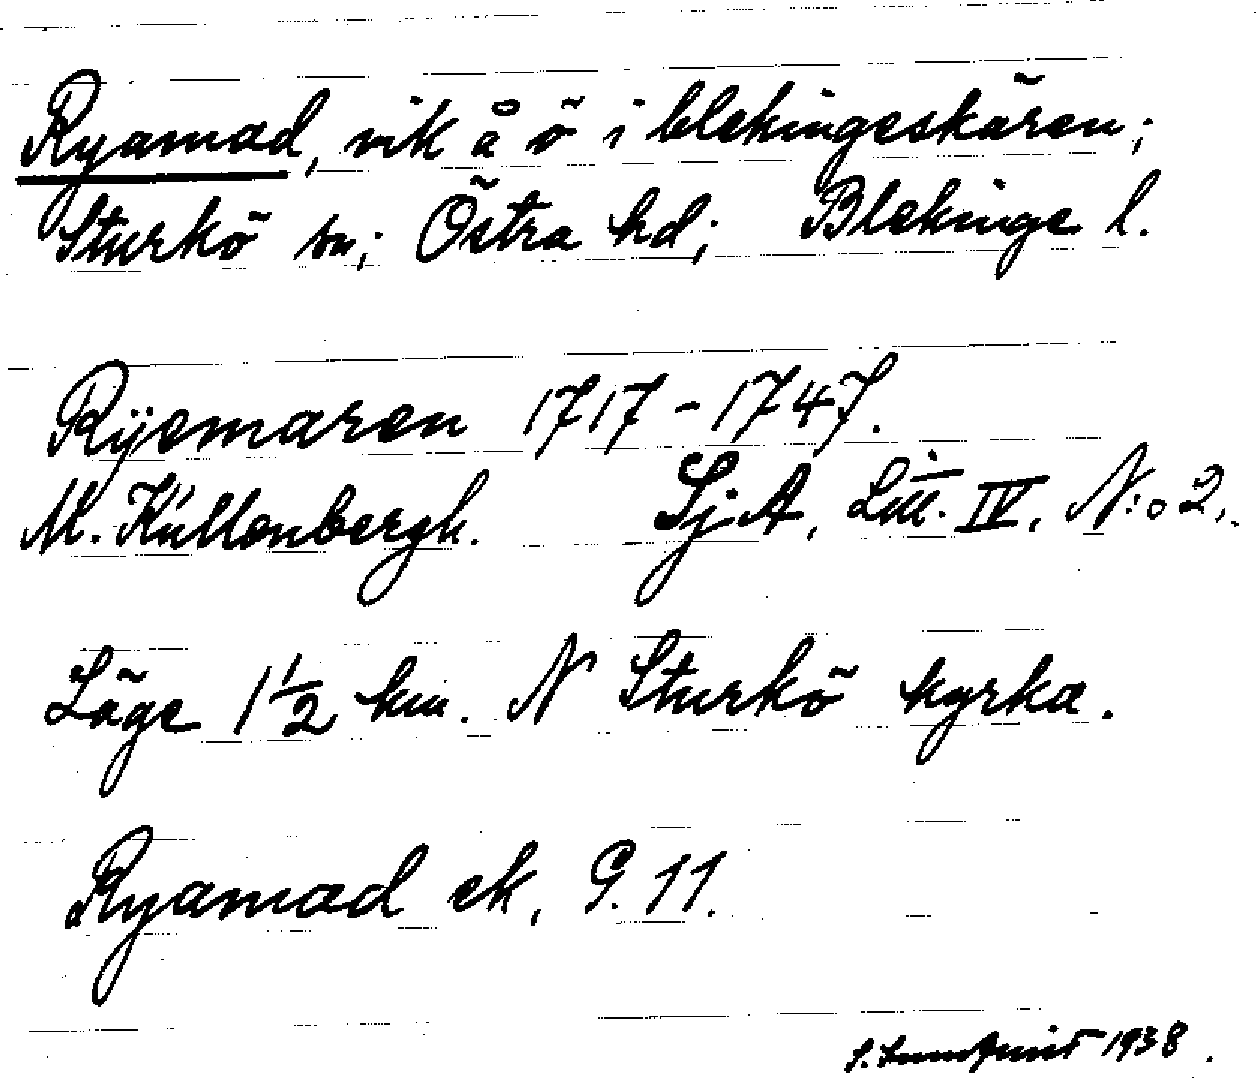 Ryamad, vik å ö i blekingeskären;
Sturkö sn; Östra hd; Blekinge l.
Rÿemaren 1717-1747.
M. Küllenbergh. Sj.A, Litt. IV. N:o 2.
Läge 1 1/2 km. N Sturkö kyrka.
Ryamad ek, G. 11.
1938.